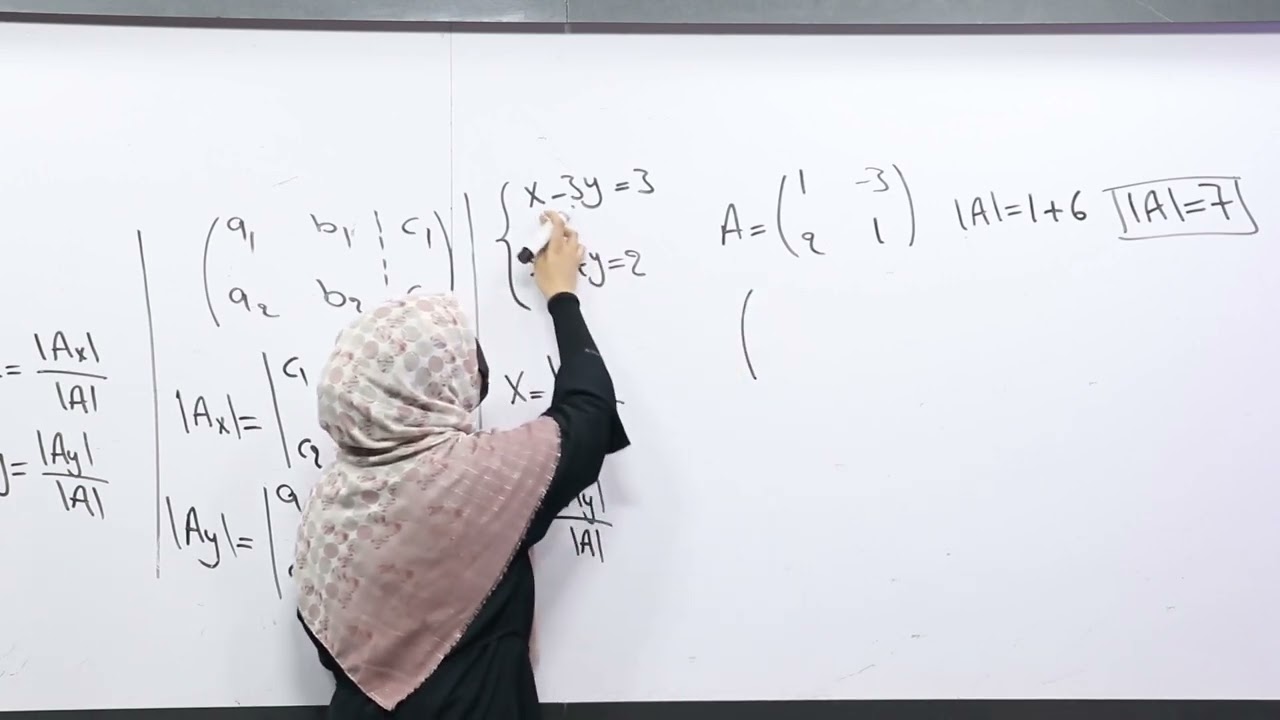 = |Ax| / |A|
y = |Ay| / |A|
( a₁ b₁ ¦ c₁ )
( a₂ b₂ ¦
|Ax| = | c₁
c₂
|Ay| = | a
x - 3y = 3
y = 2
x =
|Ay| / |A|
A = ( 1 -3
2 1 )
|A| = 1 + 6
|A| = 7
(